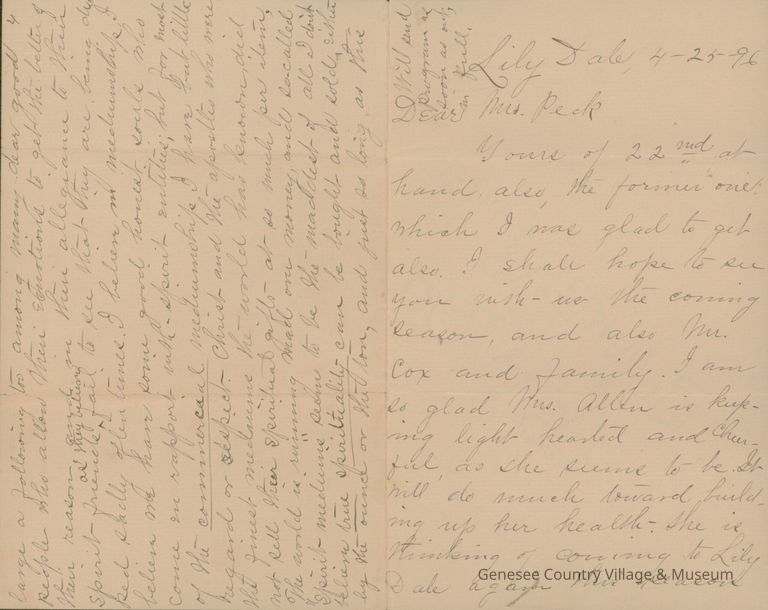 Will send
Program as
soon as out,
in full.
Lily Dale, 4-25-96
Dear Mrs. Peck
Yours of 22nd at
hand, also, the former one.
which I was glad to get
also. I shall hope to see
you with us the coming
season, and also Mr.
Cox and family. I am
so glad Mrs. Allen is keep-
ing light hearted and Cheer-
ful, as she seems to be. It
will do much toward build-
ing up her health. She is
thinking of coming to Lily
Dale again this season
large a following too among many dear good
people who allow their emotions to get the better of
their reason in their allegiance to their
as they term
spirit friends fail to see that they are being
ped sadly oftentimes. I believe in mediumship, I
believe we have some good honest souls who
come in rapport with spirit entities; but for most
of the commercial mediumship I have but little
regard or respect. Christ and the apostles who were
the finest mediums the world has known, did
not sell their spiritual gifts at so much per item,
The world is running mad over money, and so-called
Spirit mediums seem to be the maddest of all. I don't
believe true spirituality can be bought and sold, either
by the ounce or the ton, and just so long as this
Genesee Country Village & Museum